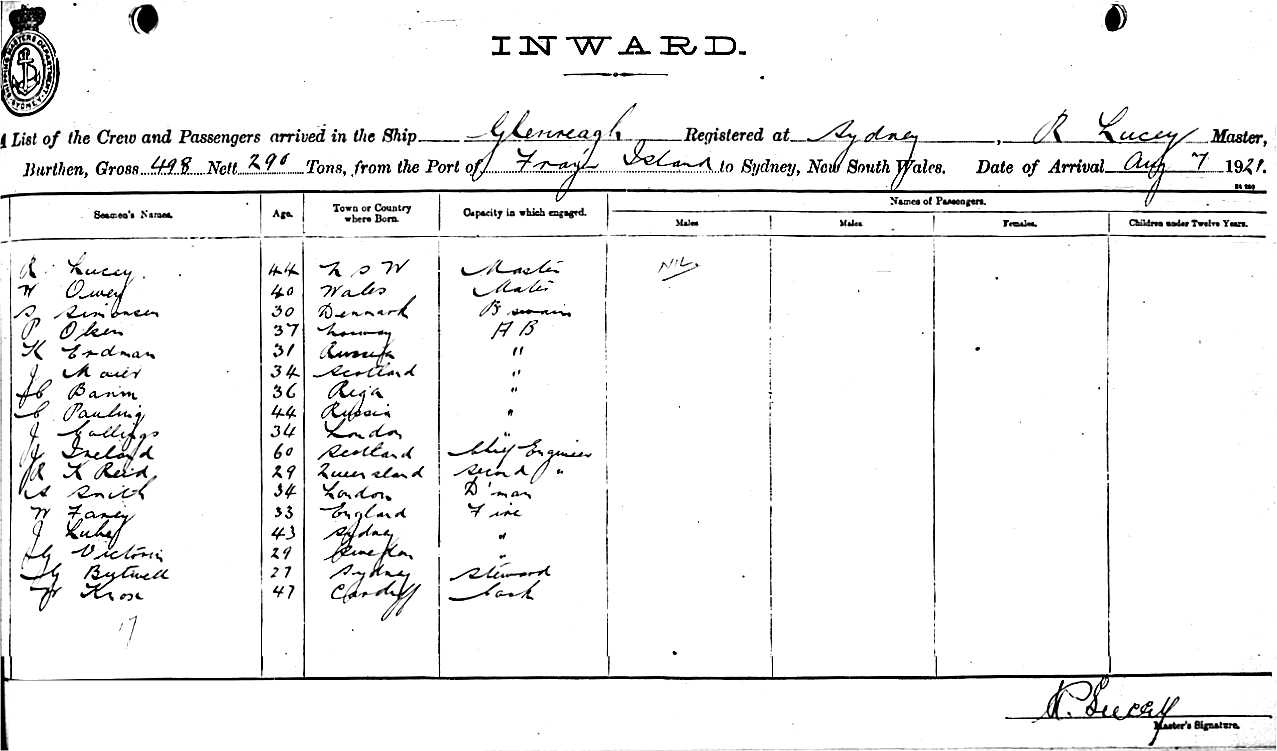 SHIPPING MASTERS DEPARTMENT SYDNEY
INWARD.
List of the Crew and Passengers arrived in the Ship Glenreagh Registered at Sydney, R Lucey Master,
Burthen, Gross 498 Nett 290 Tons, from the Port of Island to Sydney, New South Wales. Date of Arrival Aug 7 1921.
Names of Passengers.
Seamen's Names. Age. Town or Country where Born. Capacity in which engaged. Males Males Females. Children under Twelve Years.
R Lucey 44 N S W Master NIL
W Owey 40 Wales Mate
S Simonsen 30 Denmark B swain
P Olsen 37 Norway A B
K Erdman 31 Russia "
J Moier 34 Scotland "
Barim 36 Riga "
C Pauling 44 Russia "
J Gollings 34 London "
J Ireland 60 Scotland Chief Engineer
R K Reid 29 Queensland Second "
S Smith 34 London D'man
W Faney 33 England Fire
J 43 Sydney "
G Victorin 29 Sweden "
G Bytwell 27 Sydney Steward
W Krose 47 Cardiff Cook
17
R. Lucey
Master's Signature.